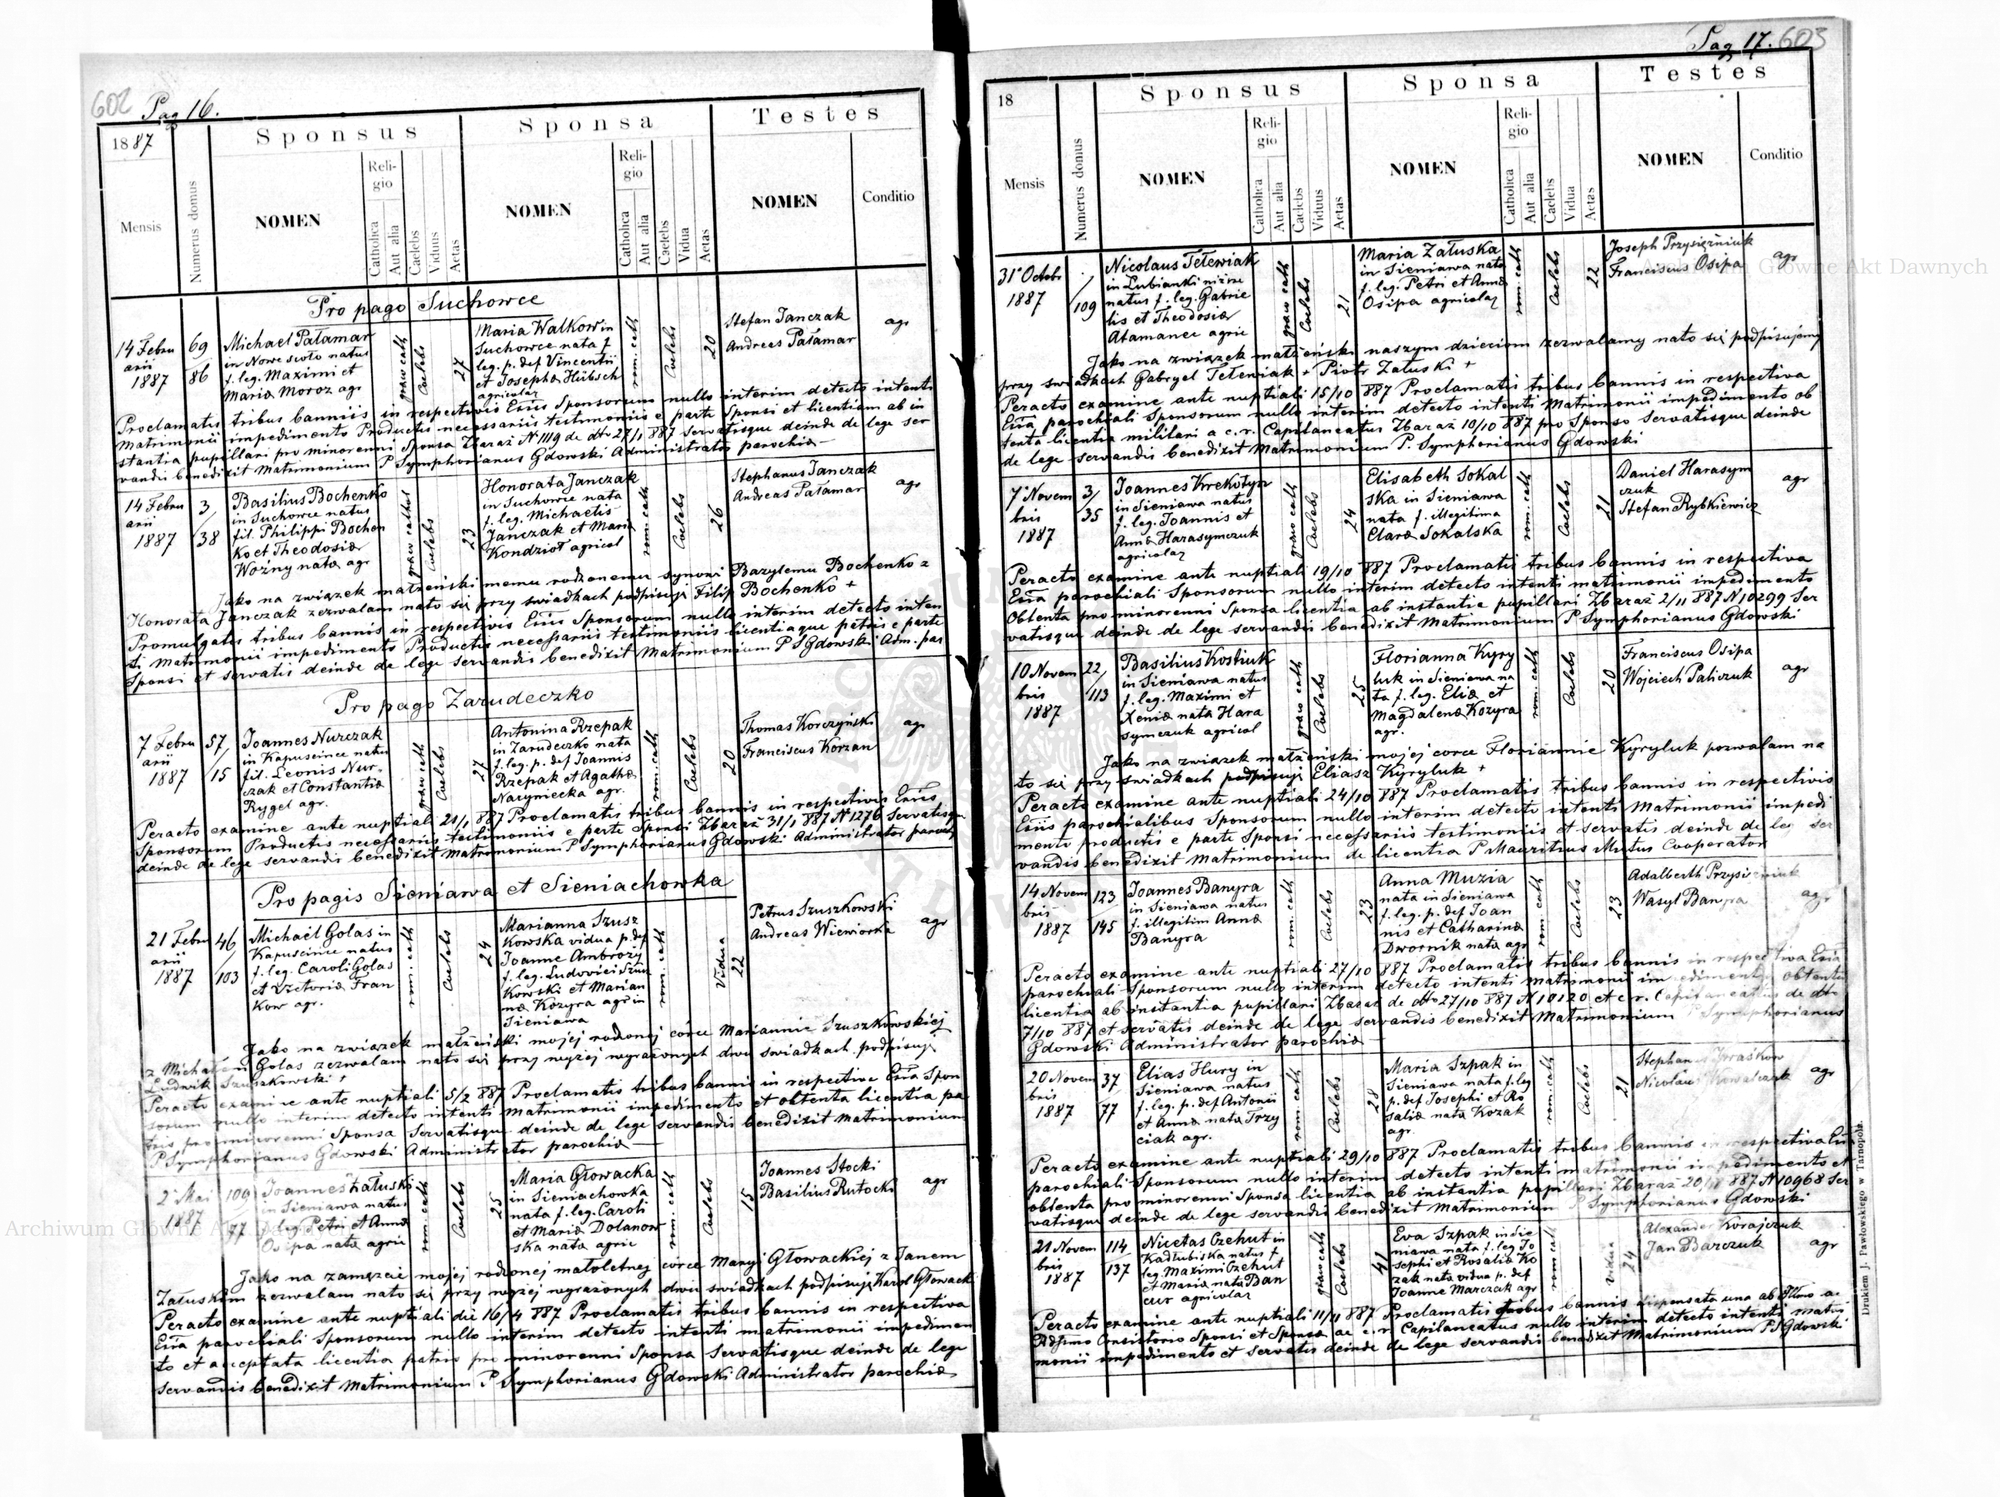 602 Pag 16.
1887
Mensis
Numerus domus
Sponsus
NOMEN
Religio
Catholica
Aut alia
Caelebs
Viduus
Aetas
Sponsa
NOMEN
Religio
Catholica
Aut alia
Caelebs
Vidua
Aetas
Testes
NOMEN
Conditio
Pro pago Suchowce
14 Febru
arii
1887
69
86
Michael Pałamar
in Nowe sioło natus
f. leg. Maximi et
Maria Moroz agr
graeco cath
Caelebs
27
Maria Walkow in
Suchowce nata f
leg. p. def Vincentii
et Josepha Hübsch
agricolar
rom. cath
Caelebs
20
Stefan Janczak
Andreas Pałamar
agr
Proclamatis tribus banniis in respectivis Eсiis Sponsorum nullo interim detecto intenti
Matrimonii impedimento Productis necessariis testimoniis e parte Sponsi et licentiam ab in
stantia pupillari pro minorenni Sponsa Zbaraż N 1119 de dto 27/1 887 Servatisque deinde de lege ser
vandis benedixit Matrimonium P Symphorianus Gdowski Administrator parochiae
14 Febru
arii
1887
3
38
Basilius Bochenko
in Suchowce natus
fil. Philippi Bochen
ko et Theodosiae
Woźny nata agr
Caelebs
23
Honorata Janczak
in Suchowce nata
f. leg. Michaelis
Janczak et Maria
Kondzioł agricol
rom. cath
Caelebs
26
Stephanus Janczak
Andreas Pałamar
agr
Jako na związek małżeński memu rodzonemu synowi Bazylemu Bochenko z
Honoratą Janczak zezwalam nato się przy świadkach podpisuję Filip Bochenko +
Promulgatis tribus bannis in respectivis Eсiis Sponsorum nullo interim detecto inten
ti Matrimonii impedimento Productis necessariis testimoniis licentiaque patris e parte
Sponsi et servatis deinde de lege servandis benedixit Matrimonium P S Gdowski Adm. par
Pro pago Zarudeczko
7 Febru
arii
1887
57
15
Joannes Nurczak
in Kapuscince natus
fil. Leonis Nur
czak et Constantia
Rygel agr.
graeco cath
Caelebs
27
Antonina Rzepak
in Zarudeczko nata
f. leg. p. def Joannis
Rzepak et Agatha
Naryniecka agr.
rom. cath
Caelebs
20
Thomas Korczyński
Franciscus Korzan
agr
Peracto examine ante nuptial 21/1 887 Proclamatis tribus bannis in respectivis Eсiis
Sponsorum Productis necessariis testimoniis e parte Sponsi Zbaraż 31/1 887 N 1276 Servatisque
deinde de lege servandis benedixit Matrimonium P Symphorianus Gdowski Administrator paroch
Pro pagis Sieniawa et Sieniachowka
21 Febru
arii
1887
46
103
Michael Golas in
Kapuscince natus
f. leg. Caroli Golas
et Victoria Fran
kow agr.
rom. cath
Caelebs
24
Marianna Szusz
kowska vidua p. def
Joanne Ambroży
f. leg. Ludovici Szusz
kowski et Marian
na Kozyra agr in
Sieniawa
rom. cath
Vidua
22
Petrus Szuszkowski
Andreas Wiewiorka
agr
Jako na związek małżeński mojej rodzonej córce Mariannie Szuszkowskiej
z Michałem Golas zezwalam nato się przy wyżej wyrażonych dwu świadkach podpisuję
Ludwik Szuszkowski +
Peracto examine ante nuptiali 5/2 887 Proclamatis tribus bannis in respective Eсia Spon
sorum nullo interim detecto intenti Matrimonii impedimento et obtenta licentia pa
tris pro minorenni Sponsa Servatisque deinde de lege servandis benedixit Matrimonium
P Symphorianus Gdowski Administrator parochiae
2 Mai
1887
109
77
Joannes Załuski
in Sieniawa natus
f. leg. Petri et Anna
Osipa nata agric
rom. cath
Caelebs
25
Maria Głowacka
in Sieniachowka
nata f. leg. Caroli
et Maria Dolanow
ska nata agric
rom. cath
Caelebs
15
Joannes Stocki
Basilius Rutocki
agr
Jako na zamęzcie mojej rodzonej małoletnej córce Maryi Głowackiej z Janem
Załuskim zezwalam nato się przy wyżej wyrażonych dwu świadkach podpisuję Karol Głowacki
Peracto examine ante nuptiali die 16/4 887 Proclamatis tribus bannis in respectiva
Eсia parochiali Sponsorum nullo interim detecto intenti matrimonii impedimen
to et acceptata licentia patris pro minorenni Sponsa Servatisque deinde de lege
servandis benedixit Matrimonium P Symphorianus Gdowski Administrator parochiae
Pag 17. 603
18
Mensis
Numerus domus
Sponsus
NOMEN
Religio
Catholica
Aut alia
Caelebs
Viduus
Aetas
Sponsa
NOMEN
Religio
Catholica
Aut alia
Caelebs
Vidua
Aetas
Testes
NOMEN
Conditio
31 Octobr
1887
109
Nicolaus Tetewiak
in Lubianki niższe
natus f. leg. Gabrie
lis et Theodosia
Adamanec agric
graeco cath
Caelebs
21
Maria Załuska
in Sieniawa nata
f. leg. Petri et Anna
Osipa agricolar
rom. cath
Caelebs
22
Joseph Przysiężniuk
Franciscus Osipa
agr
Jako na związek małżeński naszym dzieciom zezwalamy nato się podpisujemy
przy świadkach Gabryel Tetewiak + Piotr Załuski +
Peracto examine ante nuptiali 15/10 887 Proclamatis tribus bannis in respectiva
Eсia parochiali Sponsorum nullo interim detecto intenti Matrimonii impedimento ob
tenta licentia militari a c. r. Capitaneatus Zbaraż 10/10 887 pro Sponso servatisque deinde
de lege servandis benedixit Matrimonium P. Symphorianus Gdowski
7 Novem
bris
1887
3
35
Joannes Krekotyn
in Sieniawa natus
f. leg. Joannis et
Anna Harasymczuk
agricolar
graeco cath
Caelebs
24
Elisabeth Sokal
ska in Sieniawa
nata f. illegitima
Clara Sokalska
rom. cath
Caelebs
21
Daniel Harasym
czuk
Stefan Rybkiewicz
agr
Peracto examine ante nuptiali 19/10 887 Proclamatis tribus bannis in respectiva
Eсia parochiali Sponsorum nullo interim detecto intenti matrimonii impedimento
Obtenta pro minorenni Sponsa licentia ab instantia pupillari Zbaraż 2/11 887 N 10299 Ser
vatisque deinde de lege servandis benedixit Matrimonium P Symphorianus Gdowski
10 Novem
bris
1887
22
113
Basilius Kostiuk
in Sieniawa natus
f. leg. Maximi et
Xenia nata Hara
symczuk agricol
graeco cath
Caelebs
25
Florianna Kyry
luk in Sieniawa na
ta f. leg. Elia et
Magdalena Kozyra
agr.
rom. cath
Caelebs
20
Franciscus Osipa
Wojciech Paliczuk
agr
Jako na związek małżeński mojej corce Floriannie Kyryluk pozwalam na
to się przy świadkach podpisuję Eliasz Kyryluk +
Peracto examine ante nuptiali 24/10 887 Proclamatis tribus bannis in respectivis
Eсiis parochialibus Sponsorum nullo interim detecto intenti Matrimonii impedi
mento productis e parte Sponsi necessariis testimoniis et servatis deinde de leg ser
vandis benedixit Matrimonium de licentia P Mauritius Mutus Cooperator
14 Novem
bris
1887
123
145
Joannes Banyra
in Sieniawa natus
f. illegitim Anna
Banyra
rom. cath
Caelebs
23
Anna Muzia
nata in Sieniawa
f. leg. p. def Joan
nis et Catharina
Dwornik nata agr
rom. cath
Caelebs
23
Adalberth Przysiężniuk
Wasyl Banyra
agr
Peracto examine ante nuptiali 27/10 887 Proclamatis tribus bannis in respectiva Eсia
parochiali Sponsorum nullo interim detecto intenti matrimonii impedimento obtenta
licentia ab instantia pupillari Zbaraż de dto 27/10 887 N 10120 et c. r. Capitaneatus de dto
7/10 887 et servatis deinde de lege servandis benedixit Matrimonium P Symphorianus
Gdowski Administrator parochiae
20 Novem
bris
1887
37
77
Elias Hury in
Sieniawa natus
f. leg. p. def Antonii
et Anna nata Trzy
ciak agr.
rom. cath
Caelebs
28
Maria Szpak in
Sieniawa nata f. leg
p. def Josephi et Ro
salia nata Kozak
agr.
rom. cath
Caelebs
21
Stephan
Nicolaus Kowalczuk
agr
Peracto examine ante nuptiali 29/10 887 Proclamatis tribus bannis in respectiva Eсia
parochiali Sponsorum nullo interim detecto intenti matrimonii impedimento et
obtenta pro minorenni Sponsa licentia ab instantia pupillari Zbaraż 20/11 887 N 10968 Ser
vatisque deinde de lege servandis benedixit Matrimonium P Symphorianus Gdowski
21 Novem
bris
1887
114
137
Nicetas Czehut in
Kadłubiska natus f
leg. Maximi Czehut
et Maria nata Ban
cur agricolar
graeco cath
Caelebs
41
Eva Szpak in Sie
niawa nata f. leg Jo
sephi et Rosalia Ko
zak nata vidua p. def
Joanne Marczak agr
rom cath
vidua
24
Alexander Korajczuk
Jan Barczuk
agr
Peracto examine ante nuptiali 11/11 887 Proclamatis tribus bannis dispensata una ab
Consistorio Sponsi et Sponsa ac c. r. Capitaneatus nullo interim detecto intenti matri
monii impedimento et servatis deinde de lege servandis benedixit Matrimonium P S Gdowski
Drukiem J. Pawłowskiego w Tarnopolu.
Archiwum Główne Akt Dawnych
Archiwum Główne Akt Dawnych